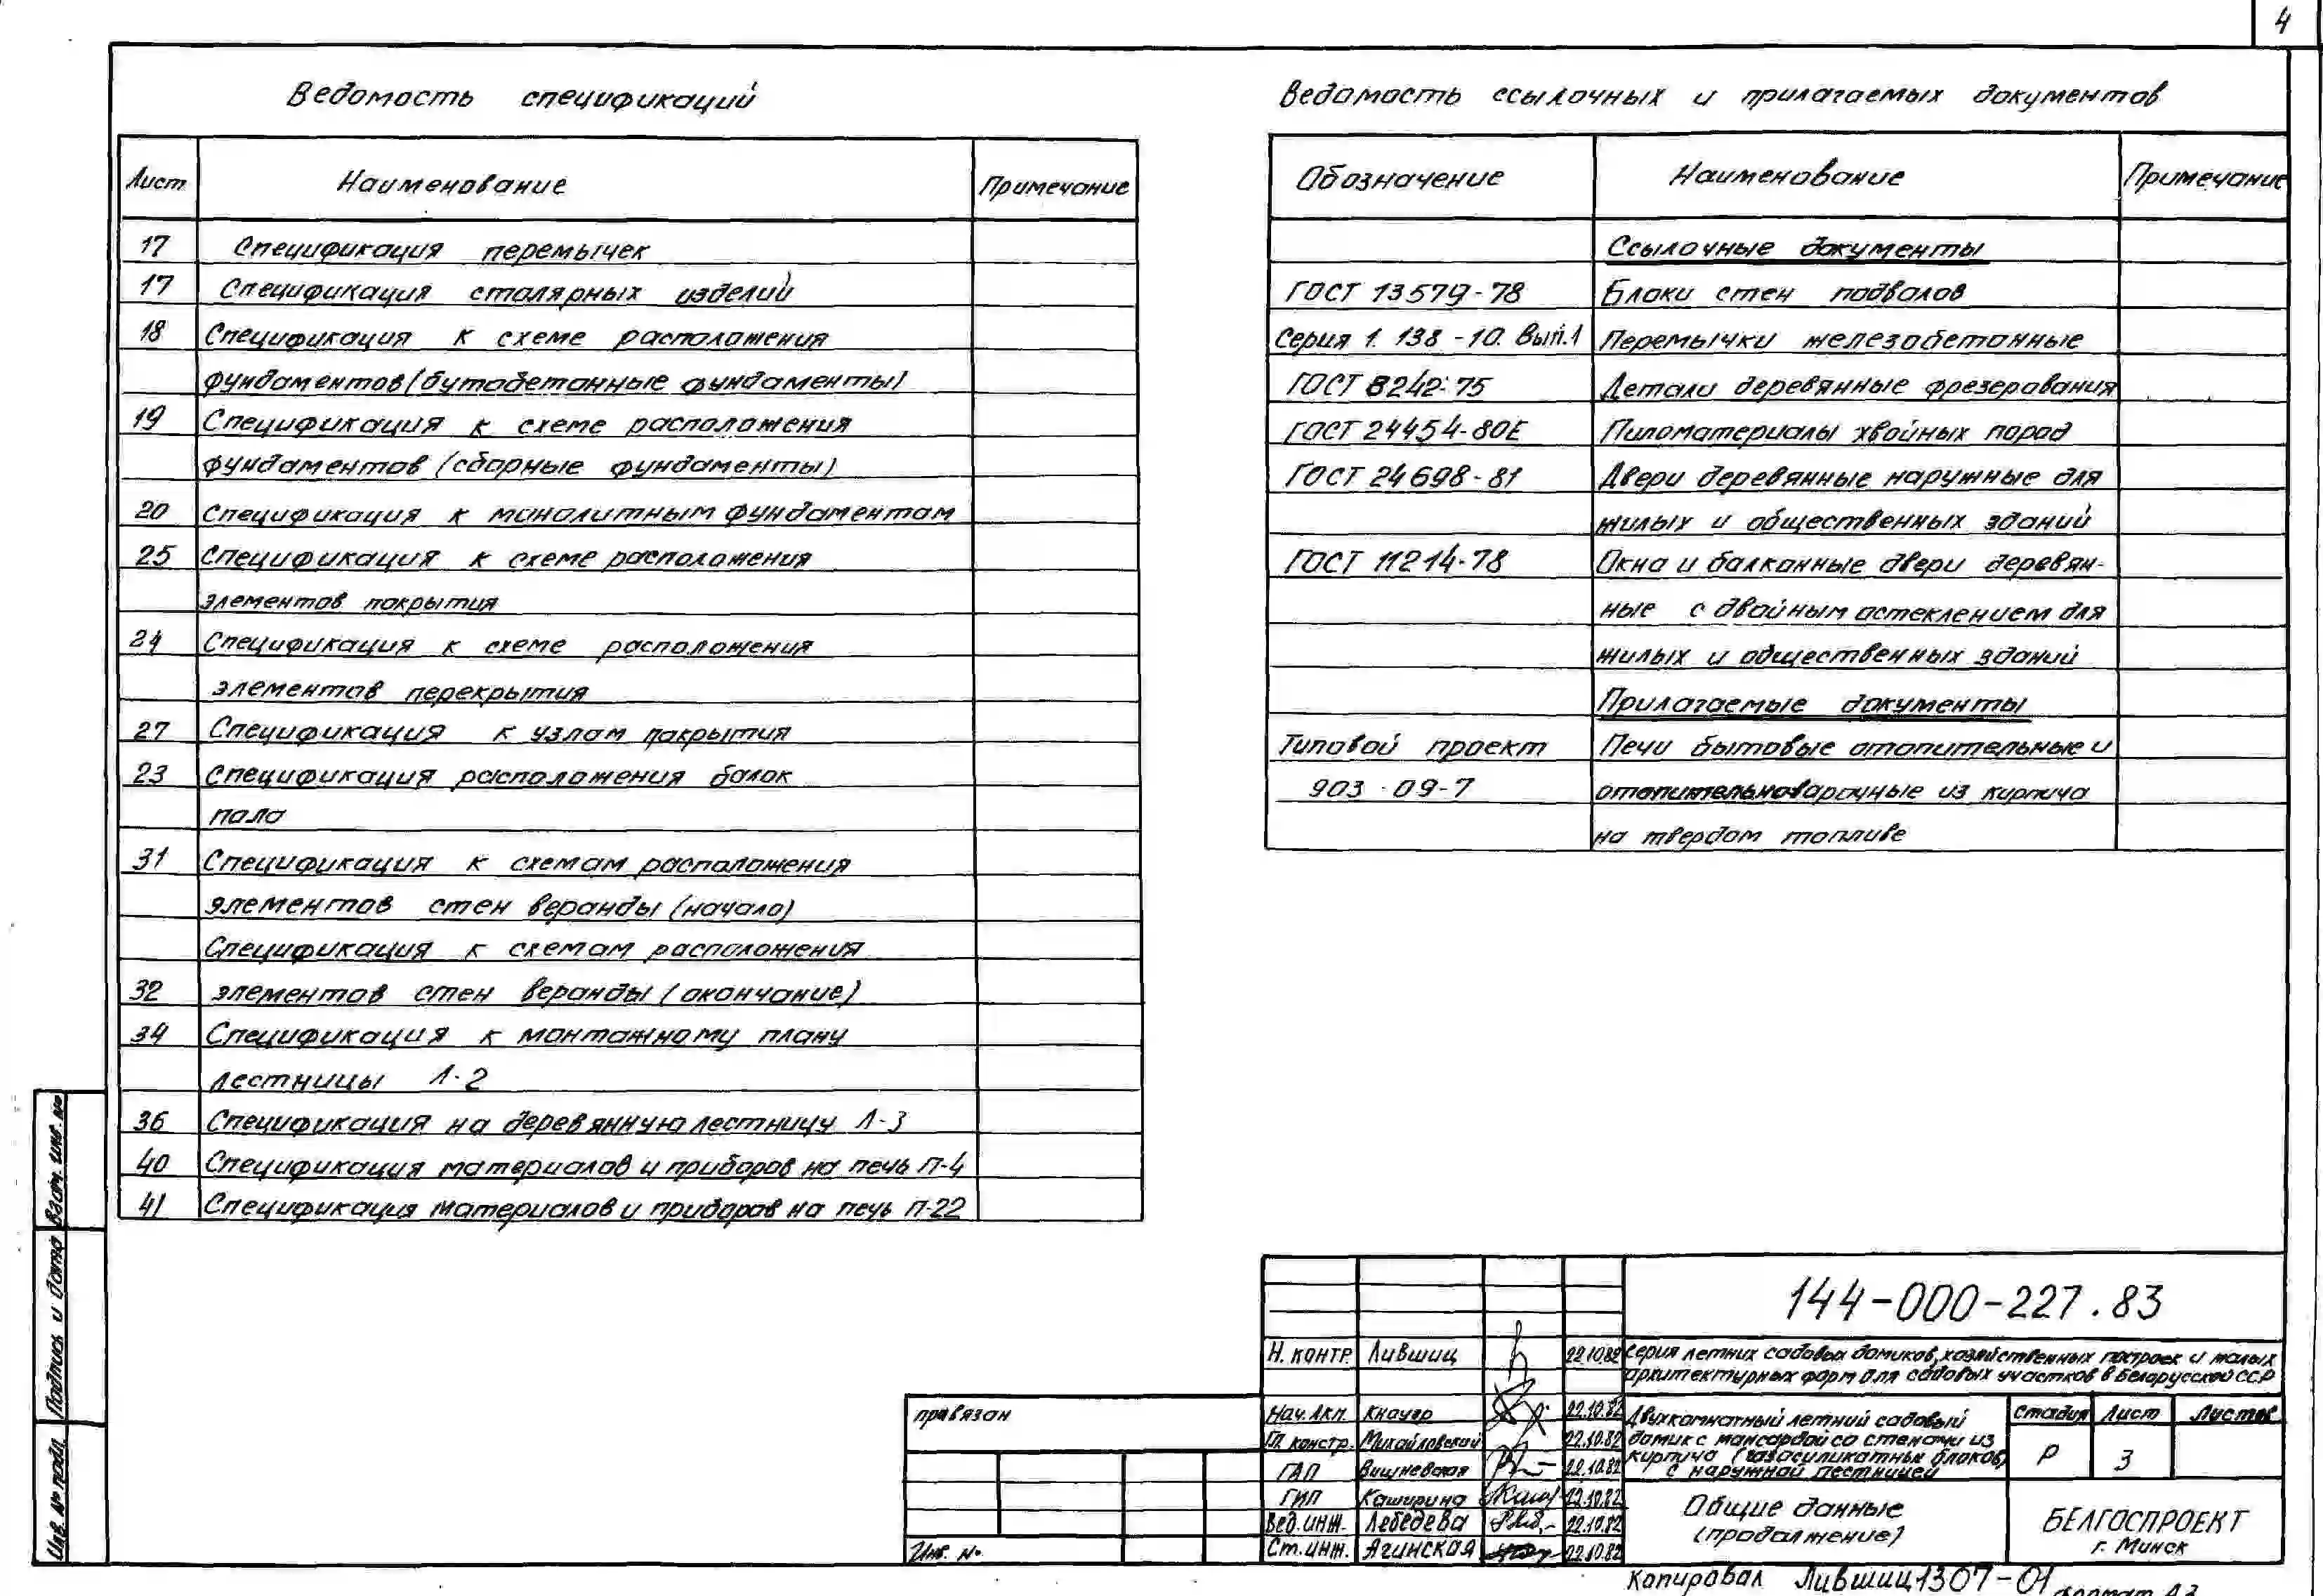 4
Ведомость спецификаций
Лист Наименование Примечание
17 Спецификация перемычек
17 Спецификация столярных изделий
18 Спецификация к схеме расположения
фундаментов (бутобетонные фундаменты)
19 Спецификация к схеме расположения
фундаментов (сборные фундаменты)
20 Спецификация к монолитным фундаментам
25 Спецификация к схеме расположения
элементов покрытия
24 Спецификация к схеме расположения
элементов перекрытия
27 Спецификация к узлам покрытия
23 Спецификация расположения балок
пола
31 Спецификация к схемам расположения
элементов стен веранды (начало)
Спецификация к схемам расположения
32 элементов стен веранды (окончание)
34 Спецификация к монтажному плану
лестницы Л-2
36 Спецификация на деревянную лестницу Л-3
40 Спецификация материалов и приборов на печь П-4
41 Спецификация материалов и приборов на печь П-22
Ведомость ссылочных и прилагаемых документов
Обозначение Наименование Примечание
Ссылочные документы
ГОСТ 13579-78 Блоки стен подвалов
Серия 1.138-10. Вып.1 Перемычки железобетонные
ГОСТ 8242-75 Детали деревянные фрезерования
ГОСТ 24454-80Е Пиломатериалы хвойных пород
ГОСТ 24698-81 Двери деревянные наружные для
жилых и общественных зданий
ГОСТ 11214-78 Окна и балконные двери деревян-
ные с двойным остеклением для
жилых и общественных зданий
Прилагаемые документы
Типовой проект Печи бытовые отопительные и
903-09-7 отопительноварочные из кирпича
на твердом топливе
Взам. инв. №
Подпись и дата
Инв. № подл.
привязан
Инв. №
144-000-227.83
Н. контр. Лившиц 22.10.82
Серия летних садовых домиков, хозяйственных построек и малых
архитектурных форм для садовых участков в Белорусской ССР
Нач. АКП. Кнаугр 22.10.82
Гл. констр. Михайловский 22.10.82
ГАП Вишневская 22.10.82
ГИП Каширина 22.10.82
Вед. инж. Лебедева 22.10.82
Ст. инж. Агинская 22.10.82
Двухкомнатный летний садовый
домик с мансардой со стенами из
кирпича (газосиликатных блоков)
с наружной лестницей
Стадия Лист Листов
Р 3
Общие данные
(продолжение)
БЕЛГОСПРОЕКТ
г. Минск
Копировал Лившиц 1307-01
Формат А3